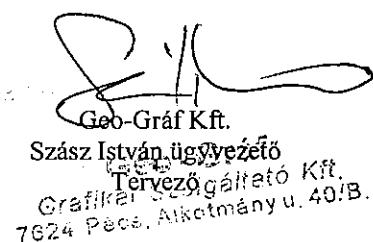 Geo-Gráf Kft.
Szász István ügyvezető
Tervező
Grafikai Szolgáltató Kft.
7624 Pécs, Alkotmány u. 40/B.